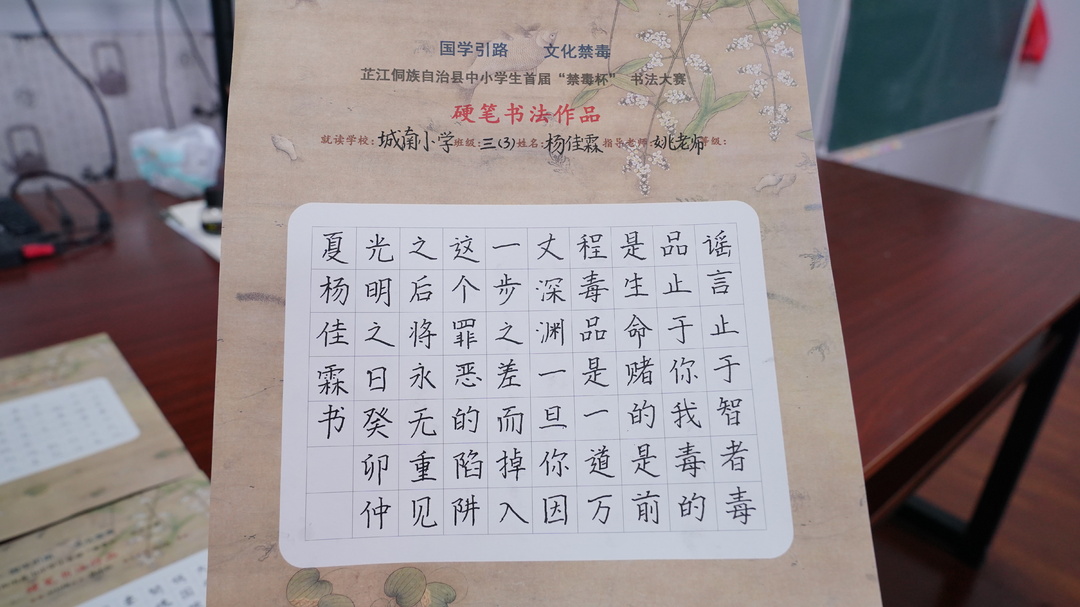 国学引路 文化禁毒
芷江侗族自治县中小学生首届“禁毒杯” 书法大赛
硬笔书法作品
就读学校：城南小学 班级：三(3) 姓名：杨佳霖 指导老师：姚老师 等级：
谣言止于智者毒
品止于你我毒的
是生命赌的是前
程毒品是一道万
丈深渊一旦你因
一步之差而掉入
这个罪恶的陷阱
之后将永无重见
光明之日癸卯仲
夏杨佳霖书
硬笔书法作品